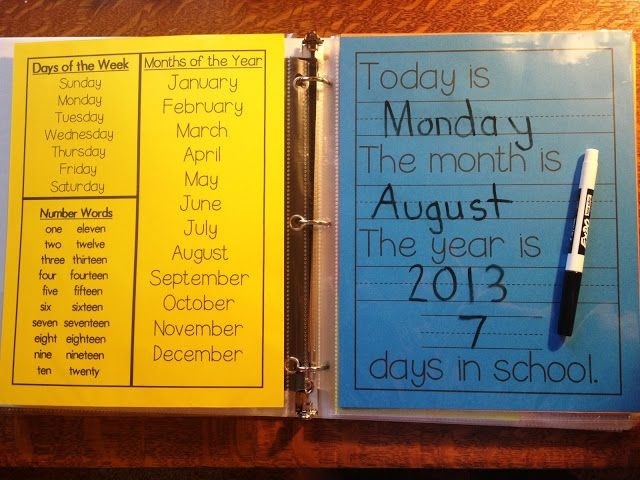 Days of the Week
Sunday
Monday
Tuesday
Wednesday
Thursday
Friday
Saturday
Number Words
one eleven
two twelve
three thirteen
four fourteen
five fifteen
six sixteen
seven seventeen
eight eighteen
nine nineteen
ten twenty
Months of the Year
January
February
March
April
May
June
July
August
September
October
November
December
Today is
Monday
The month is
August
The year is
2013
7
days in school.
EXPO